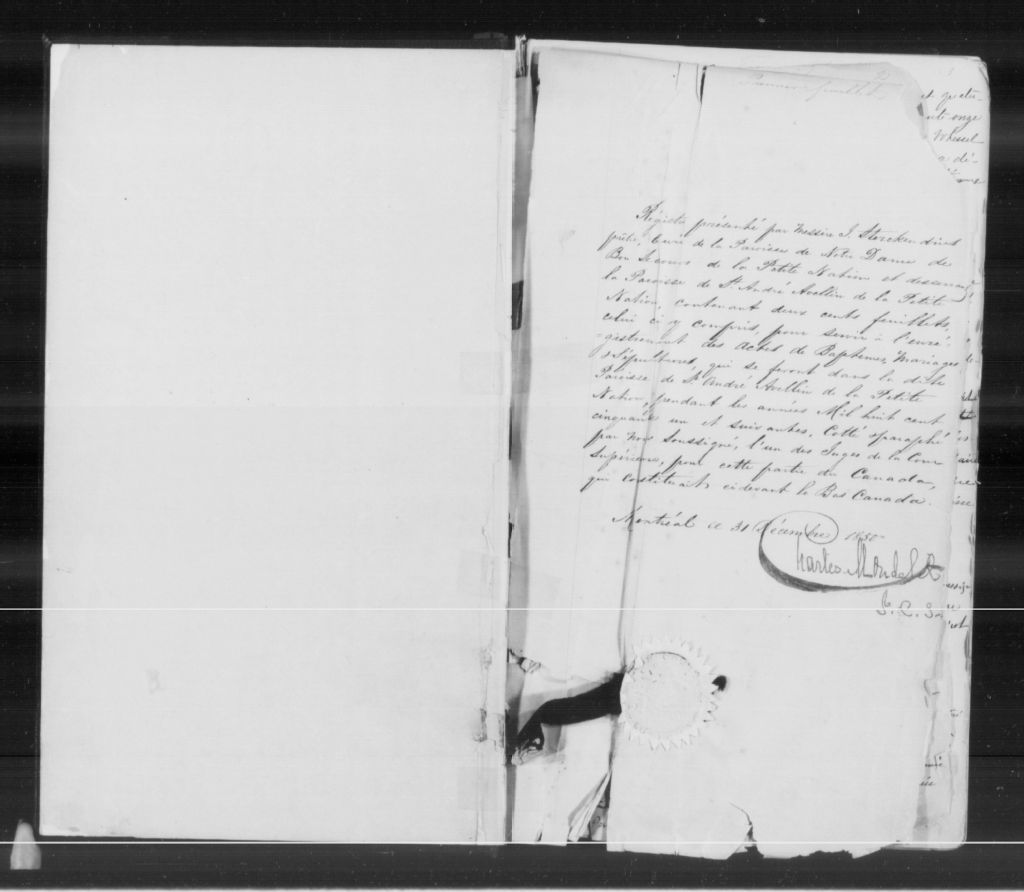 Premier feuillet
Régistre présenté par Messire J. Storcken dirs
prêtre, Curé de la Paroisse de Notre Dame de
Bon Secours de la Petite Nation et desservant
la Paroisse de St. André Avellin de la Petite
Nation, contenant deux cents feuillets,
celui ci y compris, pour servir à l'enré-
gistrement des Actes de Baptêmes, Mariages
& Sépultures, qui se feront dans la dite
Paroisse de St. André Avellin de la Petite
Nation, pendant les années Mil huit cent
cinquante un et suivantes, Cotté & paraphé
par Nous Soussigné, l'un des Juges de la Cour
Supérieure, pour cette partie du Canada,
qui constituait ci devant le Bas Canada.
Montréal ce 31 Décembre 1850
Charles Mondelet
J. C. S.